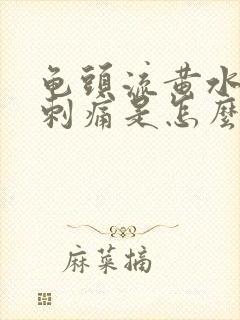 龟頭流黄水
刺痛是怎麼
麻菜摘